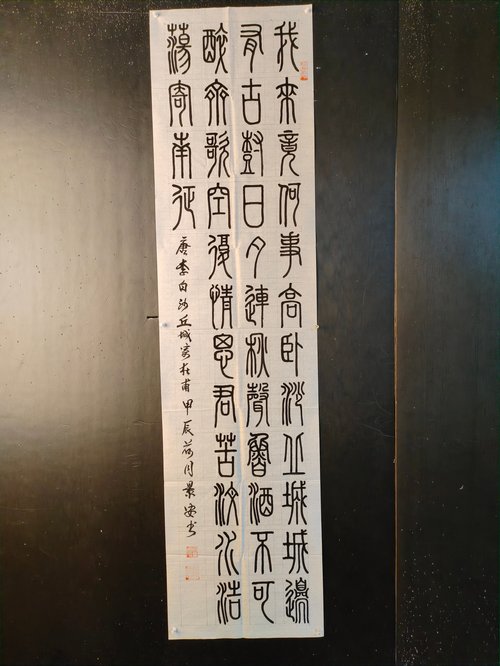 我來竟何事高卧沙丘城城邊
有古樹日夕連秋聲魯酒不可
醉齊歌空復情思君若汶水浩
蕩寄南征
唐李白沙丘城寄杜甫 甲辰荷月景安书